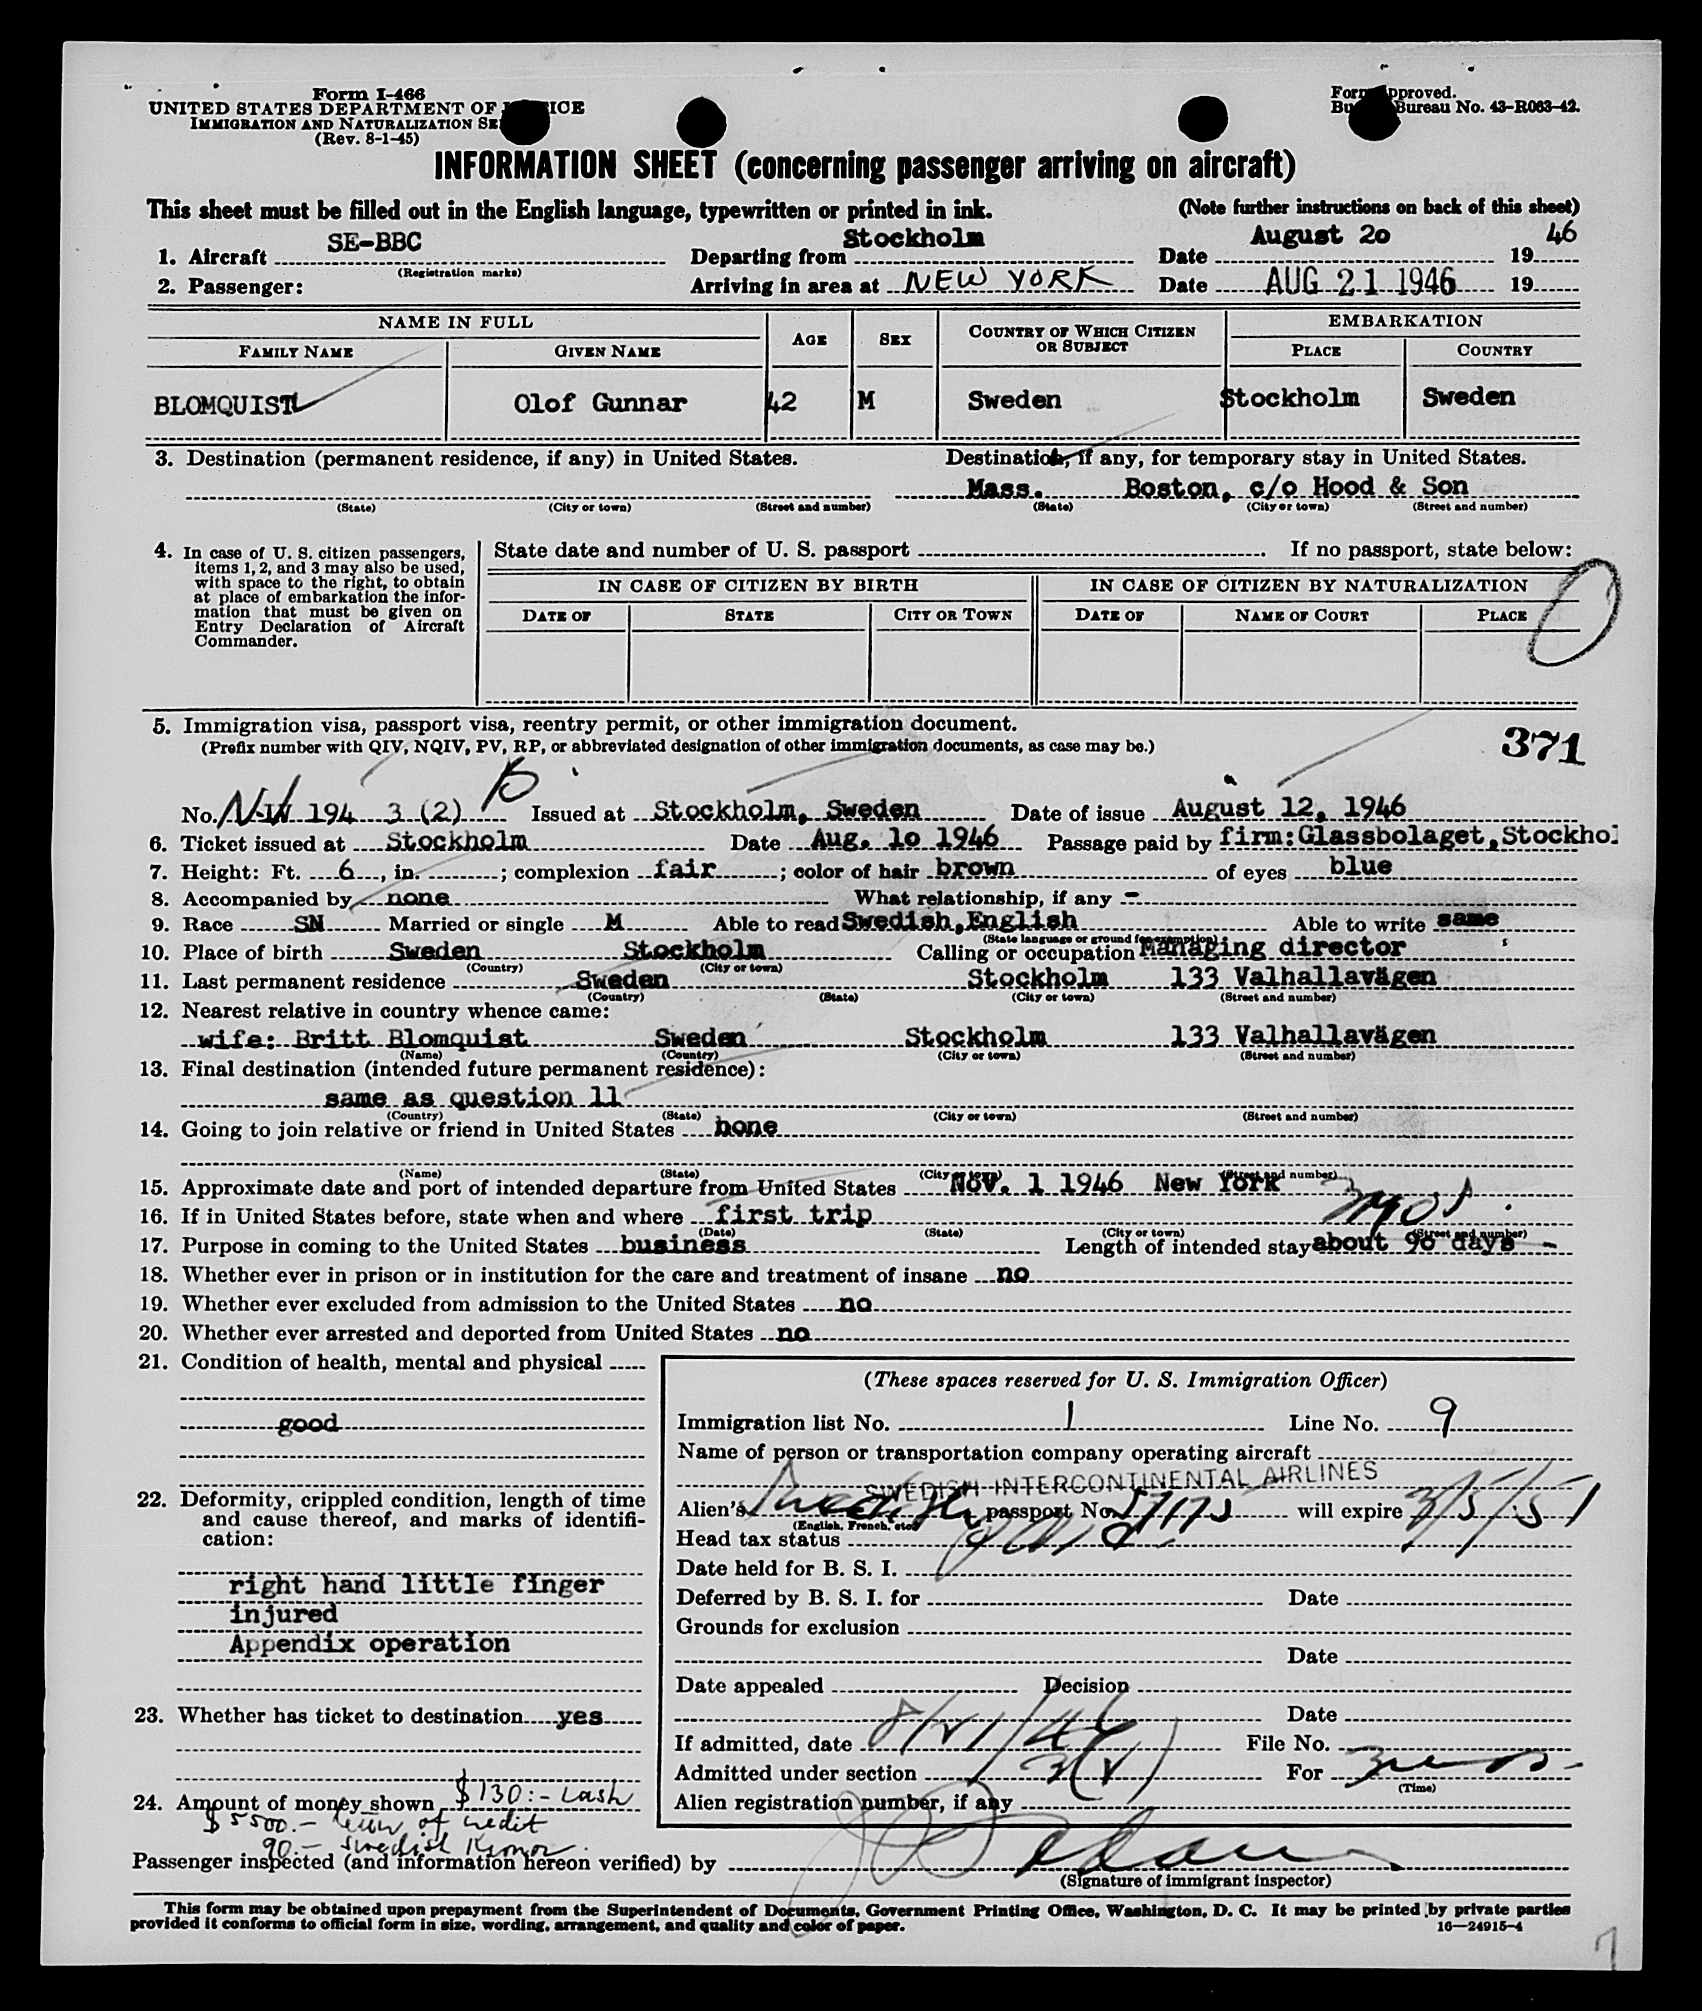 Form I-466
UNITED STATES DEPARTMENT OF
IMMIGRATION AND NATURALIZATION
(Rev. 8-1-45)
Form Approved.
Bureau No. 43-R063-42.
INFORMATION SHEET (concerning passenger arriving on aircraft)
This sheet must be filled out in the English language, typewritten or printed in ink.
(Note further instructions on back of this sheet)
1. Aircraft SE-BBC Departing from Stockholm Date August 20 1946
(Registration marks)
2. Passenger: Arriving in area at NEW YORK Date AUG 21 1946 19
NAME IN FULL AGE SEX COUNTRY OF WHICH CITIZEN OR SUBJECT EMBARKATION
FAMILY NAME GIVEN NAME PLACE COUNTRY
BLOMQUIST Olof Gunnar 42 M Sweden Stockholm Sweden
3. Destination (permanent residence, if any) in United States. Destination, if any, for temporary stay in United States.
Mass. Boston, c/o Hood & Son
(State) (City or town) (Street and number) (State) (City or town) (Street and number)
4. In case of U. S. citizen passengers, items 1, 2, and 3 may also be used, with space to the right, to obtain at place of embarkation the information that must be given on Entry Declaration of Aircraft Commander.
State date and number of U. S. passport . If no passport, state below:
IN CASE OF CITIZEN BY BIRTH IN CASE OF CITIZEN BY NATURALIZATION
DATE OF STATE CITY OR TOWN DATE OF NAME OF COURT PLACE
5. Immigration visa, passport visa, reentry permit, or other immigration document.
(Prefix number with QIV, NQIV, PV, RP, or abbreviated designation of other immigration documents, as case may be.)
371
No. 194 3 (2) Issued at Stockholm, Sweden Date of issue August 12, 1946
6. Ticket issued at Stockholm Date Aug. 10 1946 Passage paid by firm:Glassbolaget,Stockhol
7. Height: Ft. 6, in. ; complexion fair; color of hair brown of eyes blue
8. Accompanied by none What relationship, if any -
9. Race SN Married or single M Able to read Swedish,English Able to write same
(State language or ground for exemption)
10. Place of birth Sweden Stockholm Calling or occupation Managing director
(Country) (City or town)
11. Last permanent residence Sweden Stockholm 133 Valhallavägen
(Country) (State) (City or town) (Street and number)
12. Nearest relative in country whence came:
wife: Britt Blomquist Sweden Stockholm 133 Valhallavägen
(Name) (Country) (City or town) (Street and number)
13. Final destination (intended future permanent residence):
same as question 11
(Country) (State) (City or town) (Street and number)
14. Going to join relative or friend in United States none
(Name) (State) (City or town) (Street and number)
15. Approximate date and port of intended departure from United States Nov. 1 1946 New York
16. If in United States before, state when and where first trip 3 mos.
(Date) (State) (City or town) (Street and number)
17. Purpose in coming to the United States business Length of intended stay about 90 days -
18. Whether ever in prison or in institution for the care and treatment of insane no
19. Whether ever excluded from admission to the United States no
20. Whether ever arrested and deported from United States no
21. Condition of health, mental and physical
good
22. Deformity, crippled condition, length of time and cause thereof, and marks of identification:
right hand little finger
injured
Appendix operation
23. Whether has ticket to destination yes
24. Amount of money shown $130:- cash
$5500.- letter of credit
90.- Swedish Kronor.
(These spaces reserved for U. S. Immigration Officer)
Immigration list No. 1 Line No. 9
Name of person or transportation company operating aircraft
SWEDISH INTERCONTINENTAL AIRLINES
Alien's Swedish passport No. will expire 3/5/51
(English, French, etc.)
Head tax status
Date held for B. S. I.
Deferred by B. S. I. for Date
Grounds for exclusion
Date
Date appealed Decision
Date
If admitted, date 8/21/46 File No.
Admitted under section 3(2) For 3 mos -
(Time)
Alien registration number, if any
Passenger inspected (and information hereon verified) by
(Signature of immigrant inspector)
This form may be obtained upon prepayment from the Superintendent of Documents, Government Printing Office, Washington, D. C. It may be printed by private parties
provided it conforms to official form in size, wording, arrangement, and quality and color of paper.
16—24915-4